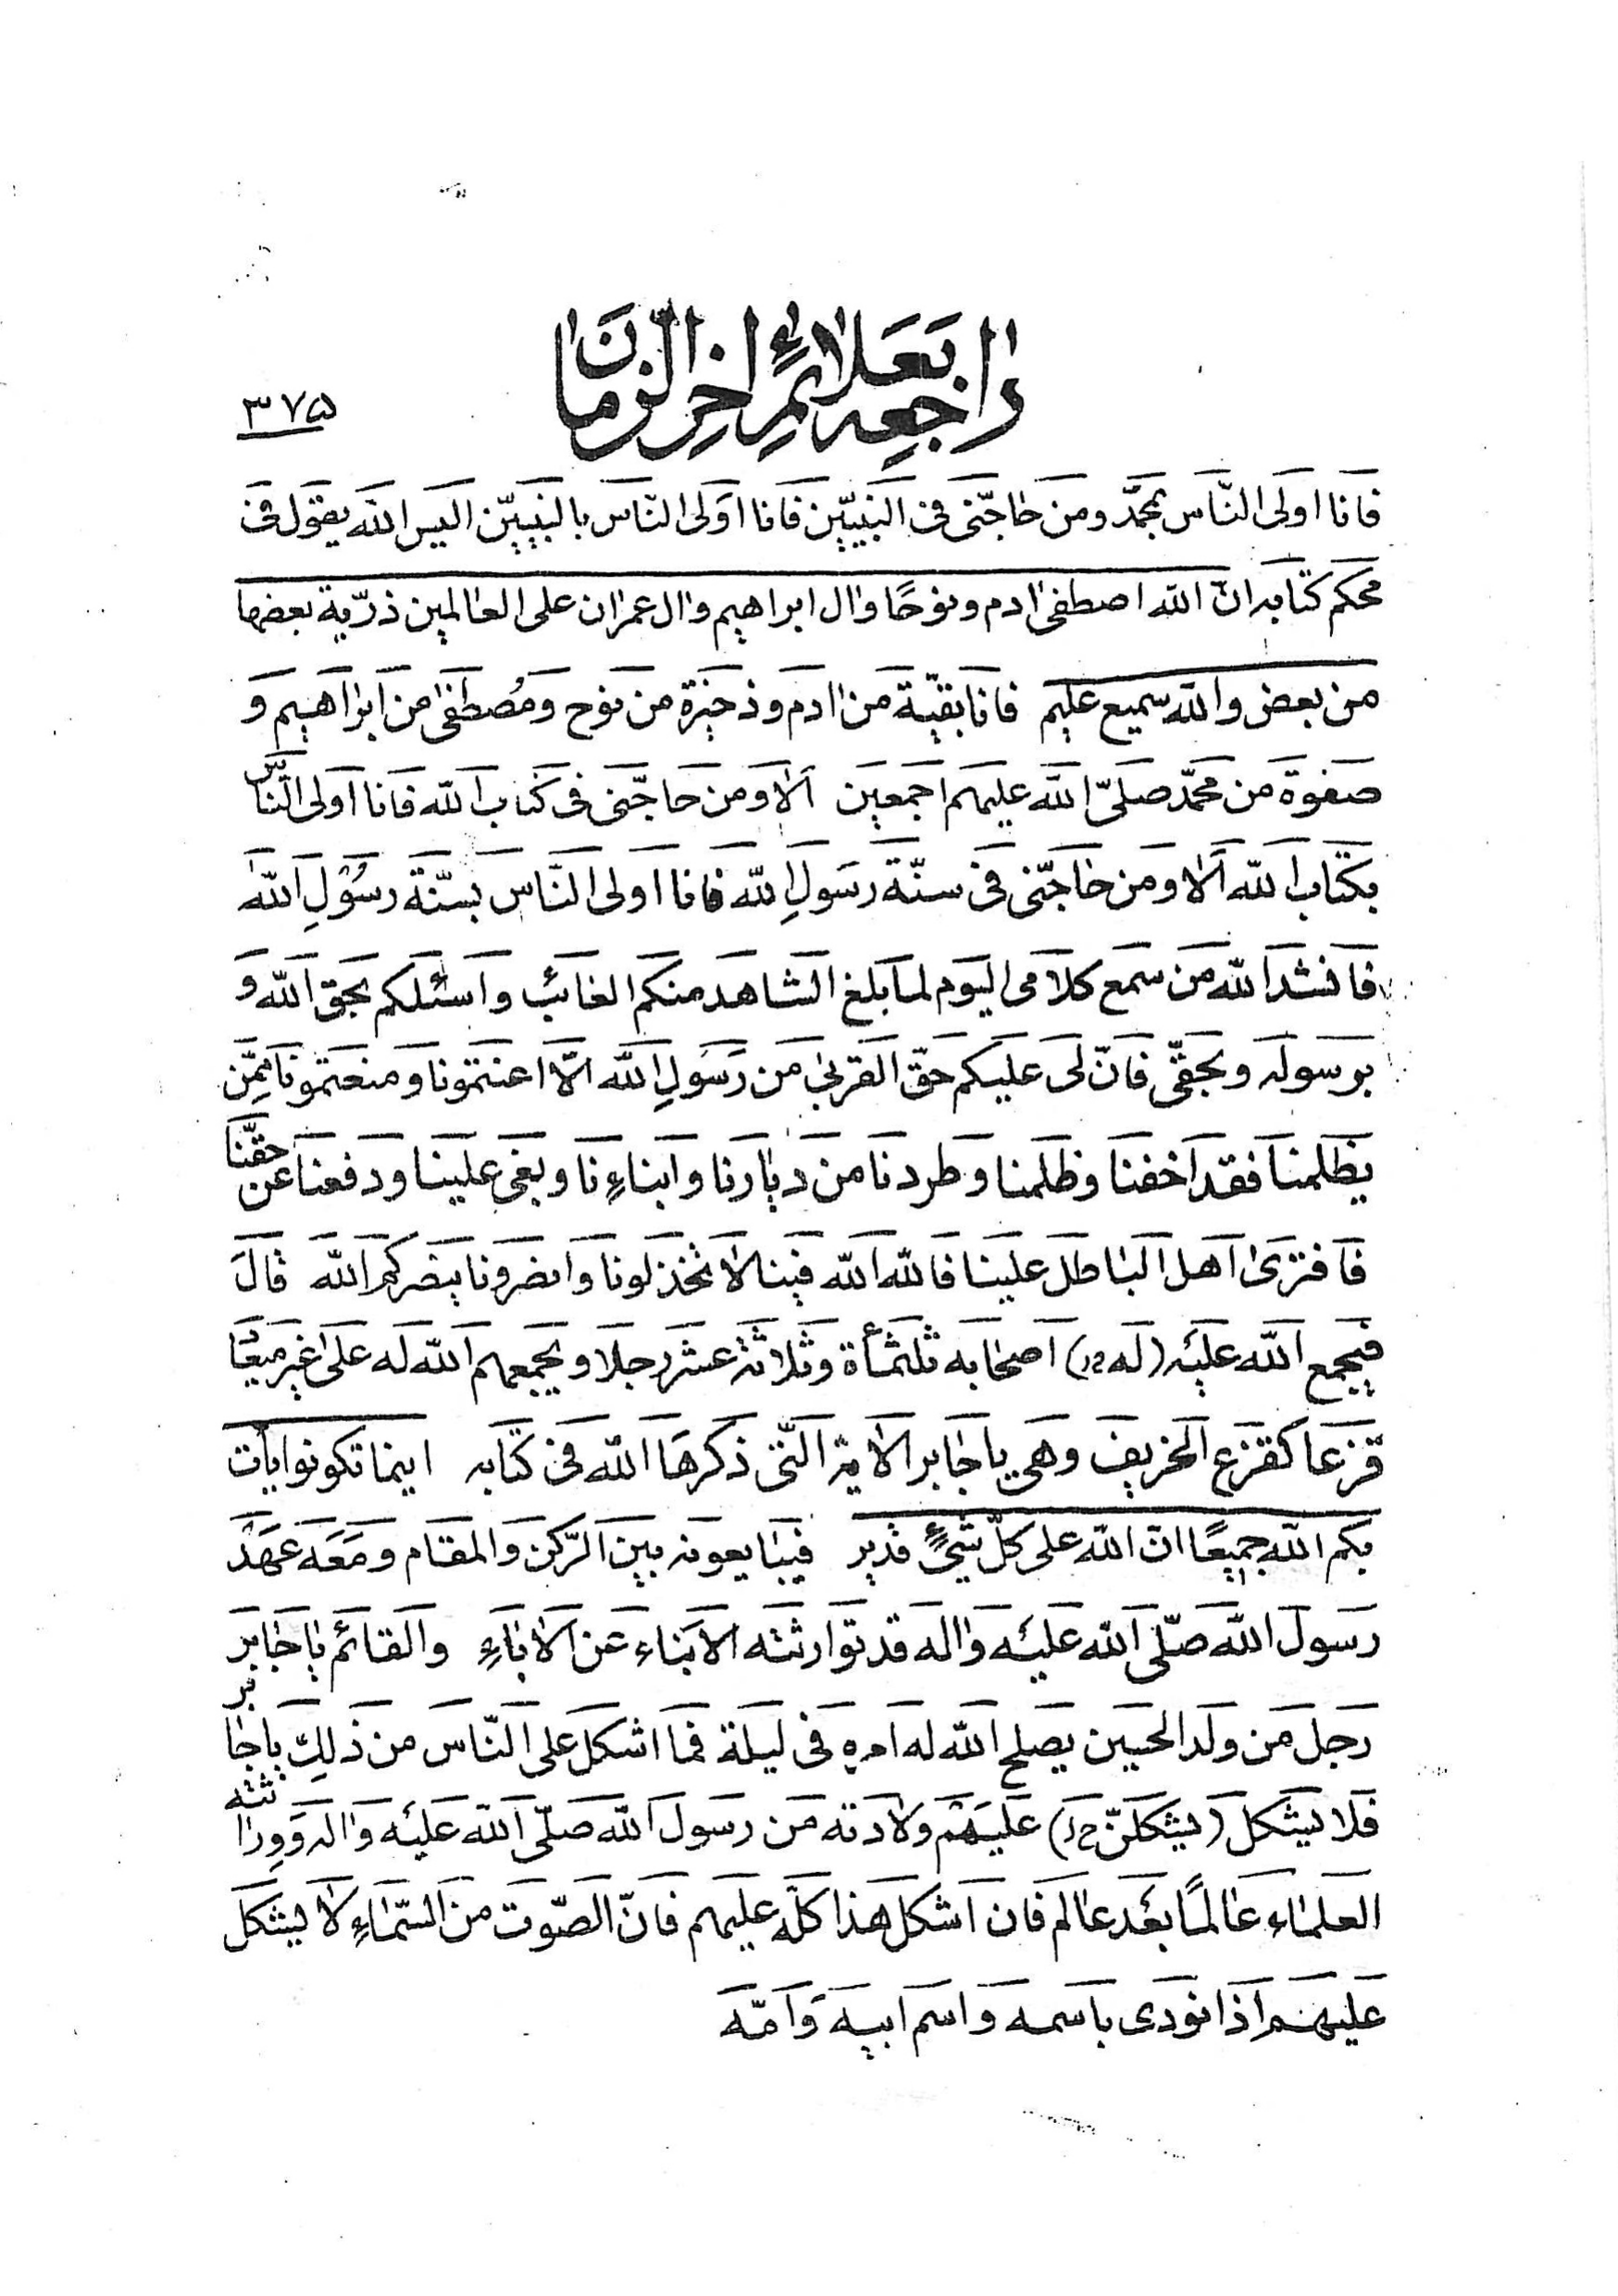 راجعه بعلائم اخر الزمان
۳۷۵
فانا اولی الناس بمحمّد ومن حاجّنی فی النبیّین فانا اولی الناس بالنبیّین الیس الله یقول فی
محکم کتابه انّ الله اصطفی ادم ونوحًا وال ابراهیم وال عمران علی العالمین ذرّیة بعضها
من بعض والله سمیع علیم فانا بقیّة من ادم وذخیرة من نوح ومُصطفی من ابراهیم و
صفوة من محمّد صلیّ الله علیهم اجمعین الا ومن حاجّنی فی کتاب الله فانا اولی النّاس
بکتاب الله الا ومن حاجّنی فی سنّة رسولِ الله فانا اولی النّاس بسنّة رسُولِ الله
فانشد الله من سمع کلامی الیوم لما بلغ الشاهد منکم الغائب واسئلکم بحق الله و
برسوله وبحقّی فانّ لی علیکم حقّ القربی من رسُولِ الله الّا اعنتمونا ومنعتمونا ممِّن
یظلمنا فقد اخفنا وظلمنا وطردنا من دیارنا وابناءِنا وبغی علینا ودفعنا عن حقّنا
فافتری اهل الباطل علینا فالله الله فینا لا تخذلونا وانصرونا ینصرکم الله قالَ
فیجمع الله علیه (له خ‌ل) اصحابه ثلثمأة وثلاثة عشر رجلا ویجمعهم الله له علی غیر میعًا
قزعا کقزع الخریف وهی یا جابر الایة الّتی ذکرها الله فی کتابه اینما تکونوا یأت
بکم الله جمیعًا انّ الله علی کلّ شیءٍ قدیر فیبایعونه بین الرّکن والمقام ومعه عهدٌ
رسول الله صلّی الله علیه واله قد توارثته الابناء عن الاٰباءِ والقائم یا جابر
رجل من ولد الحسین یصلح الله له امره فی لیلة فما اشکل علی النّاس من ذلک یا جابر
فلا یشکل (یشکلنّ خ‌ل) علیهم ولادته من رسول الله صلّی الله علیه واله ووراثته
العلماء عالمًا بعد عالم فان اشکل هذا کلّه علیهم فانّ الصّوت من السّماءِ لا یشکل
علیهم اذا نودی باسمه واسم ابیه وامّه